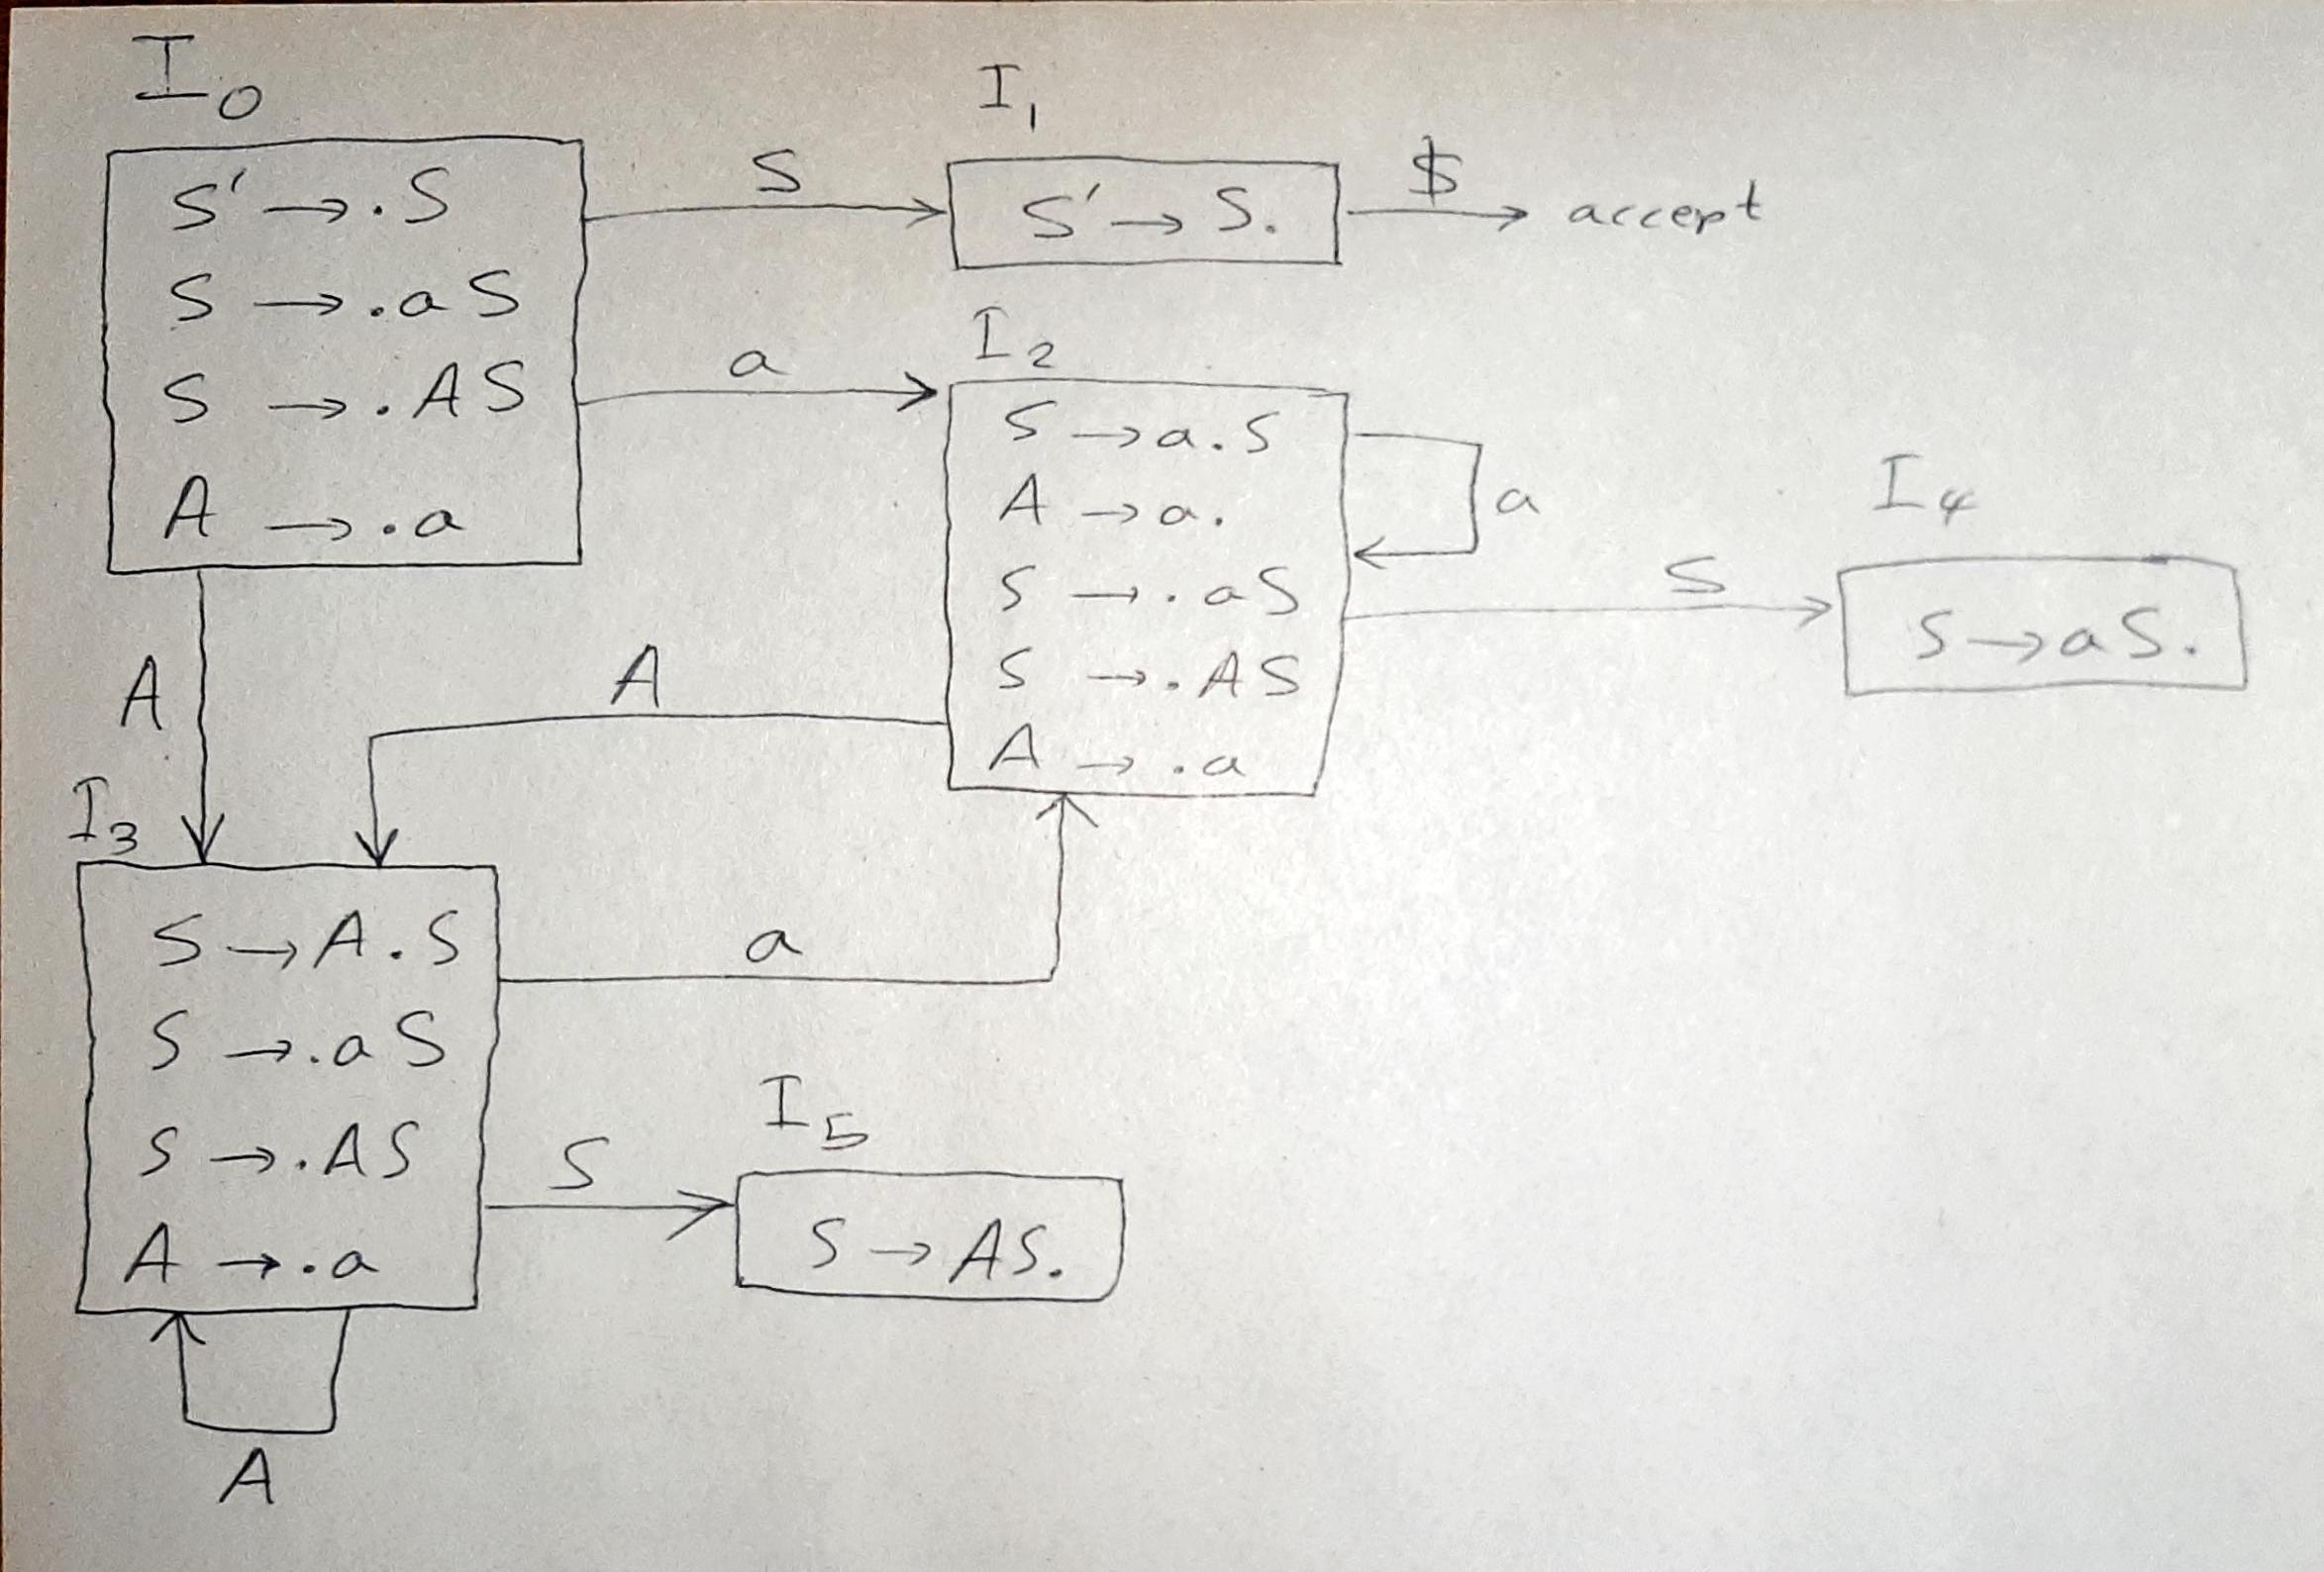 I0
S' → .S
S → .aS
S → .AS
A → .a
S
I1
S' → S.
$
accept
a
I2
S → a.S
A → a.
S → .aS
S → .AS
A → .a
a
S
I4
S → aS.
A
A
I3
S → A.S
S → .aS
S → .AS
A → .a
a
S
I5
S → AS.
A